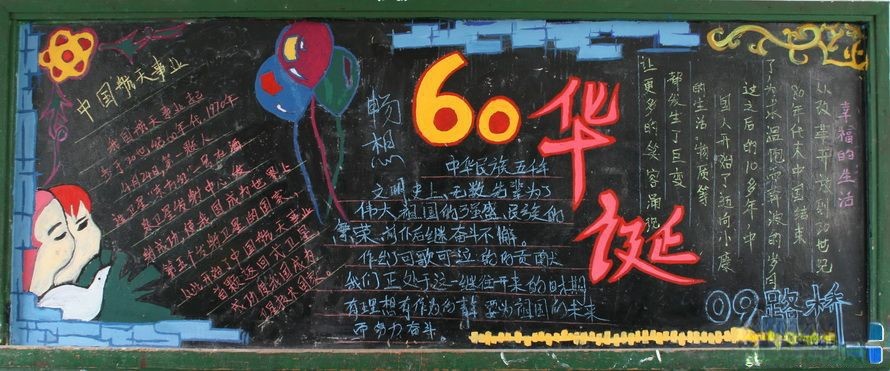 中国航天事业
我国航天事业起
步于20世纪50年代,1970年
4月24日,第一颗人
造卫星"东方红"一号在酒
泉卫星发射中心发
射成功,使我国成为世界上
第五个发射卫星的国家,
从此开始了中国航天事业
首颗返回式卫星
成功使我国成为
畅想
60
华诞
中华民族五千年
文明史上,无数先辈为了
伟大祖国的强盛、民族的
繁荣,前仆后继奋斗不懈。
作出了可歌可泣的贡献
我们正处于这一继往开来的时期
有理想有作为的
要为祖国的未来
而努力奋斗
幸福的生活
从改革开放到20世纪
80年代末中国结束
了
这之后的10多年,中
国人开始了迈向小康
的生活。物质等
都发生了巨变
让更多的笑容涌现
09路桥